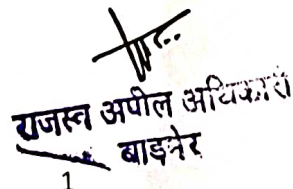 राजस्व अपील अधिकारी
बाड़मेर
1